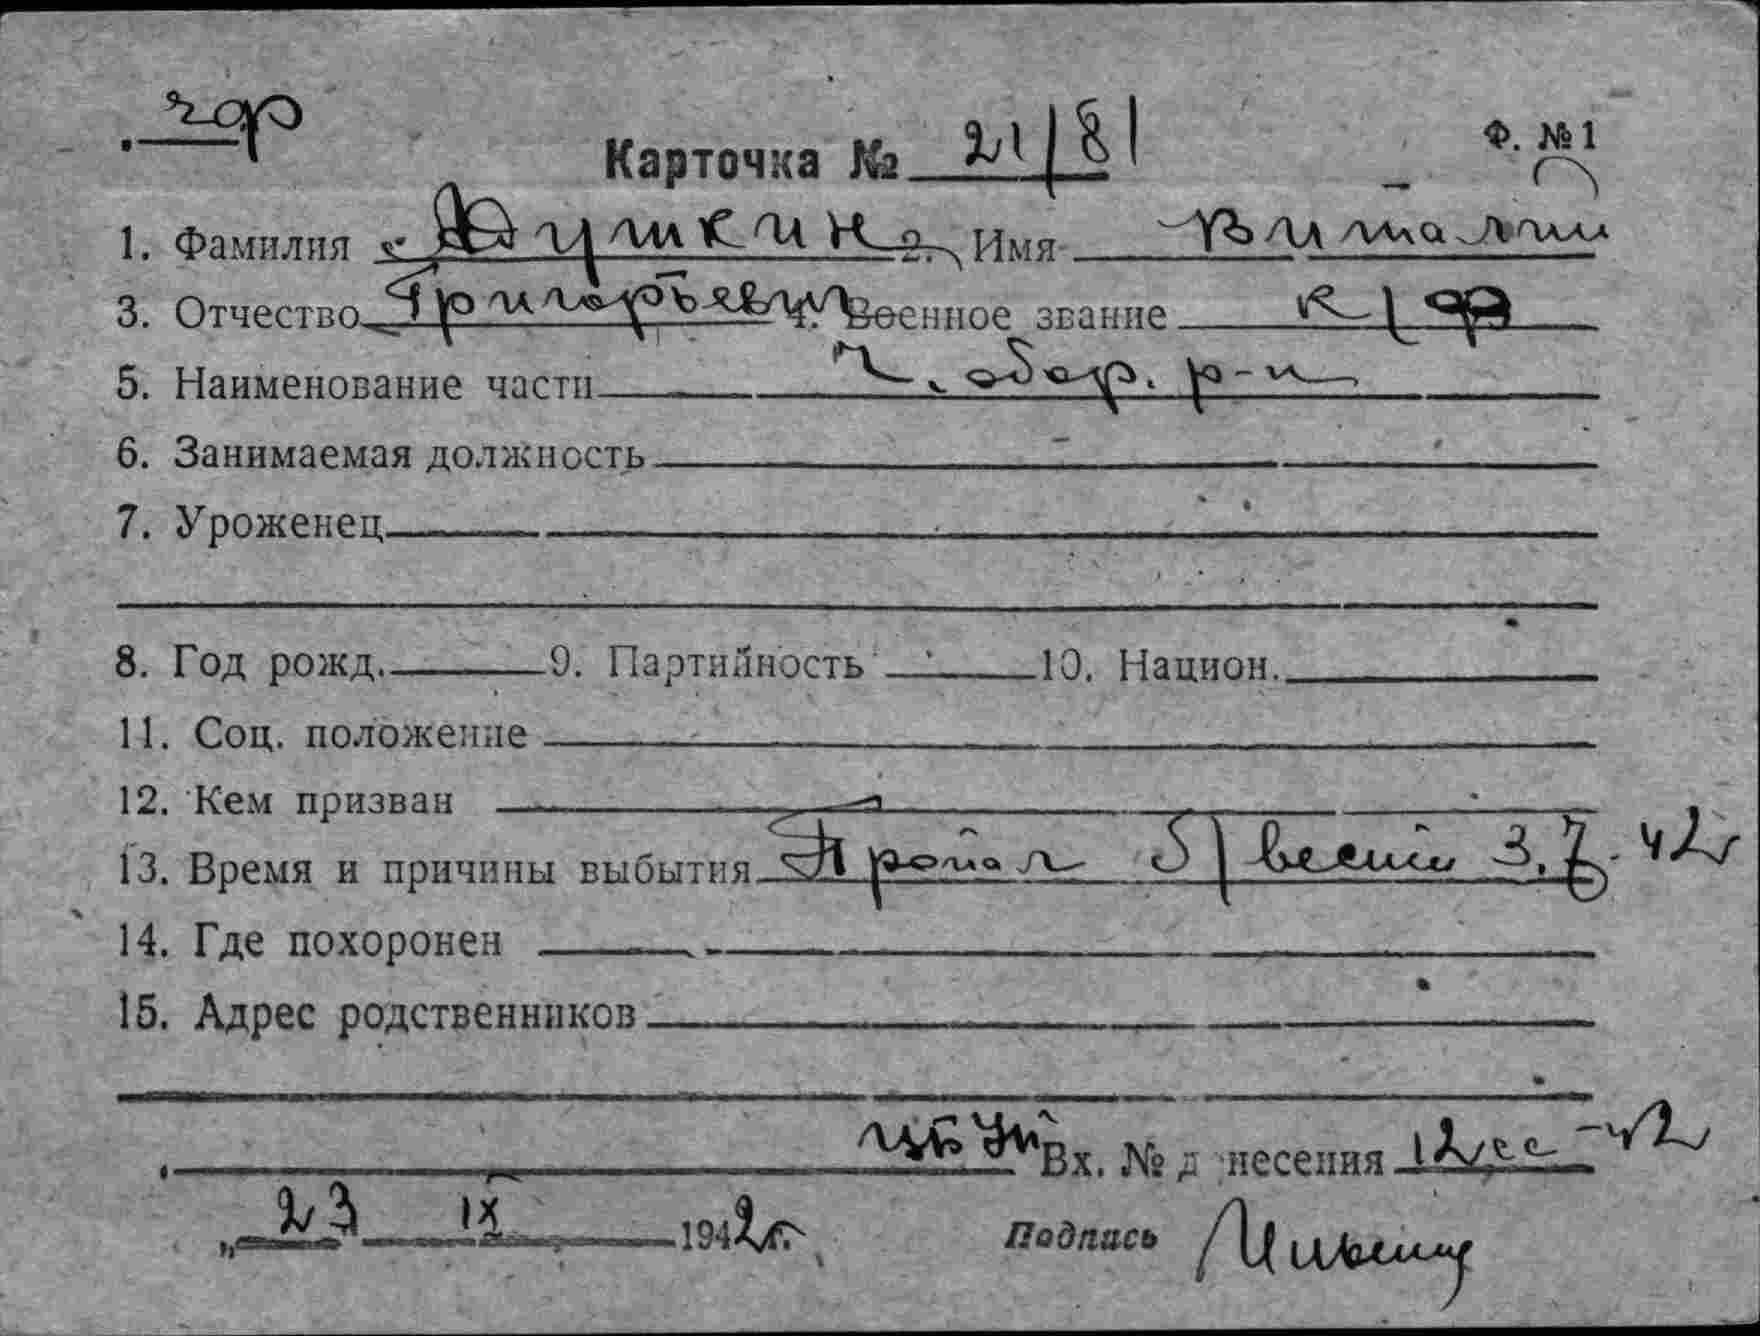 чф
Карточка № 21/81 Ф. № 1
1. Фамилия Юшкин 2. Имя Виталий
3. Отчество Григорьевич 4. Военное звание к/ф
5. Наименование части Ч. обор. р-н
6. Занимаемая должность
7. Уроженец
8. Год рожд. 9. Партийность 10. Национ.
11. Соц. положение
12. Кем призван
13. Время и причины выбытия Пропал б/вести 3.7.42г
14. Где похоронен
15. Адрес родственников
Вх. № д несения 12сс-42
„23 IX 1942г.
Подпись